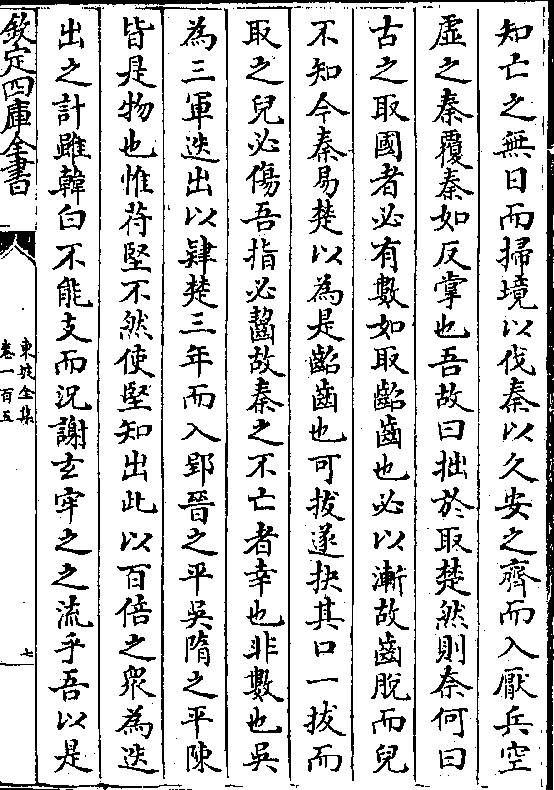 知亡之無日而掃境以伐秦以久安之齊而入厭兵空
虛之秦覆秦如反掌也吾故曰拙於取楚然則奈何曰
古之取國者必有數如取齠齒也必以漸故齒脫而兒
不知今秦易楚以為是齠齒也可拔遂抉其口一拔而
取之兒必傷吾指必齧故秦之不亡者幸也非數也吳
為三軍迭出以肄楚三年而入郢晉之平吳隋之平陳
皆是物也惟苻堅不然使堅知出此以百倍之眾為迭
出之計雖韓白不能支而況謝玄牢之之流乎吾以是
欽定四庫全書
東坡全集
卷一百五
七